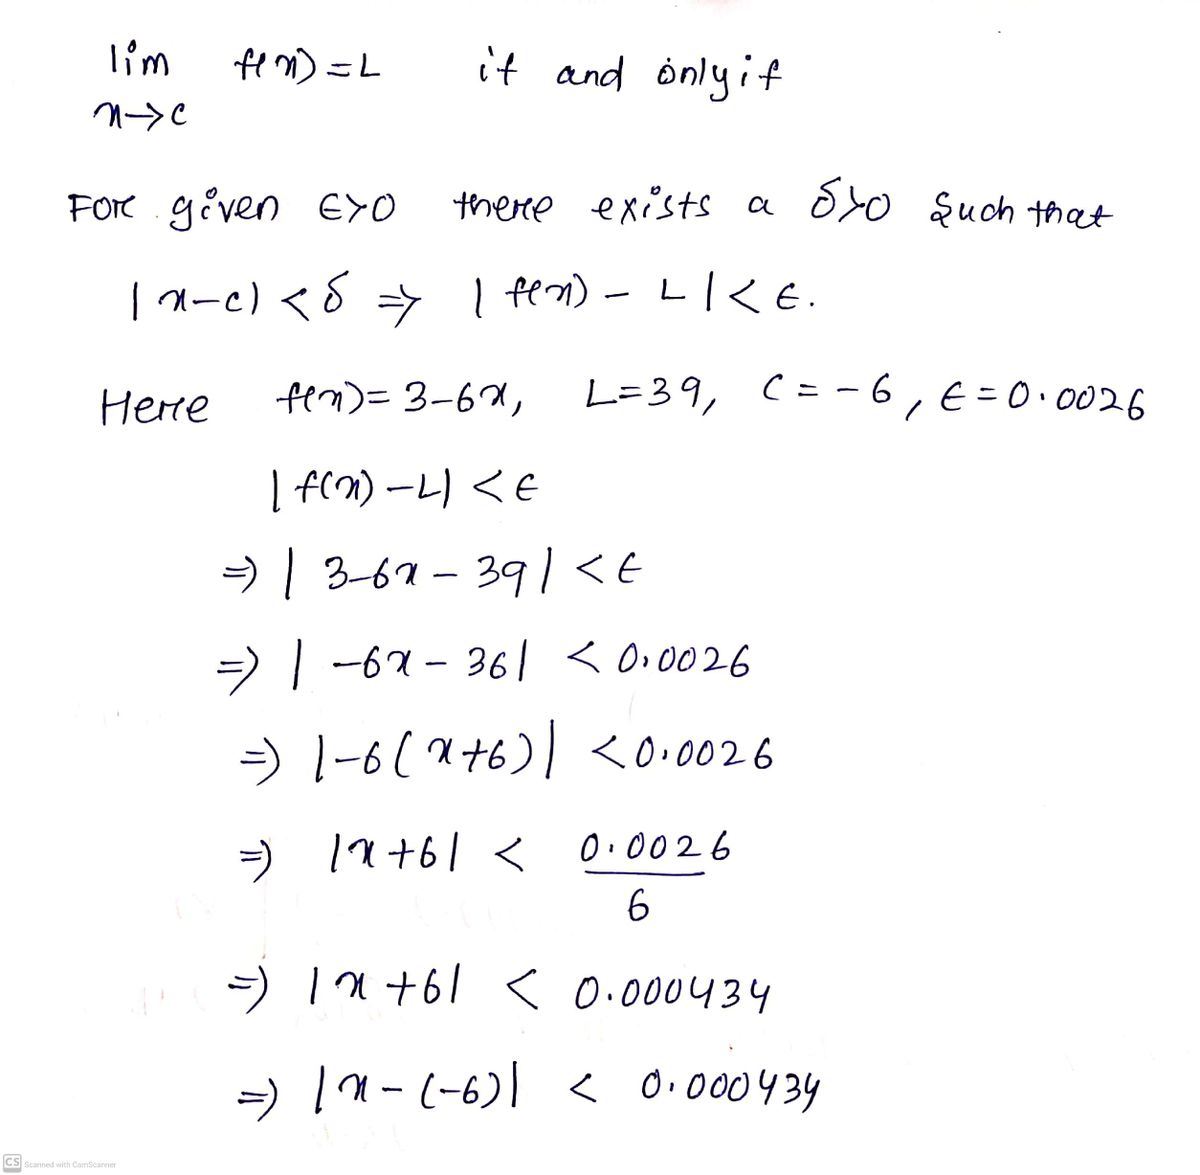 lim f(x) = L if and only if
x→c
For given ∈>0 there exists a δ>0 such that
|x-c| < δ ⇒ | f(x) - L | < ∈.
Here f(x) = 3-6x, L=39, C = -6, ∈ = 0.0026
| f(x) - L| < ∈
⇒ | 3-6x - 39 | < ∈
⇒ | -6x - 36 | < 0.0026
⇒ |-6(x+6)| < 0.0026
⇒ |x+6| < 0.0026
6
⇒ |x+6| < 0.000434
⇒ |x-(-6)| < 0.000434
CS Scanned with CamScanner